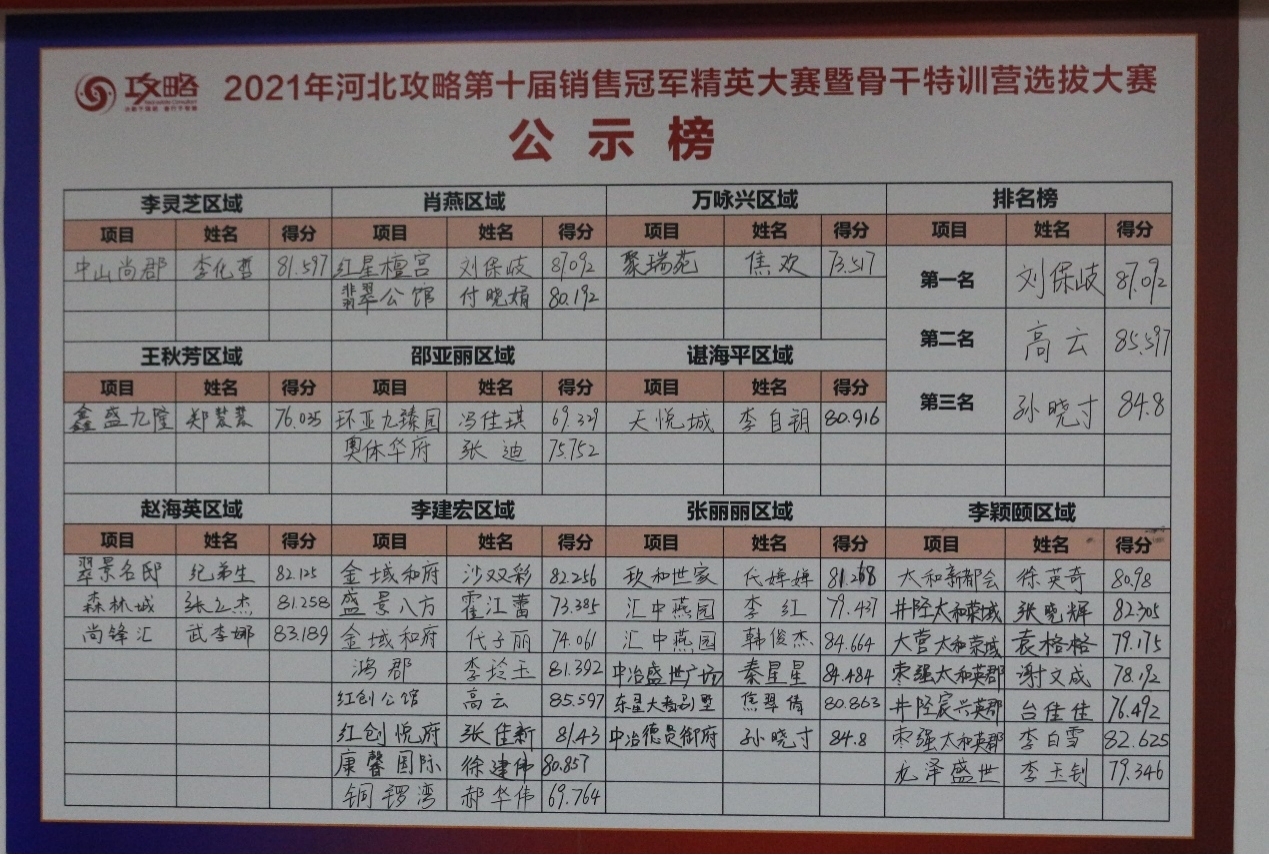 攻略 2021年河北攻略第十届销售冠军精英大赛暨骨干特训营选拔大赛
公示榜
李灵芝区域 肖燕区域 万咏兴区域 排名榜
项目 姓名 得分 项目 姓名 得分 项目 姓名 得分 项目 姓名 得分
中山尚郡 李化哲 81.597 红星檀宫 刘保岐 87.092 聚瑞苑 焦欢 73.517
第一名 刘保岐 87.092
翡翠公馆 付晓娟 80.192
第二名 高云 85.597
王秋芳区域 邵亚丽区域 谌海平区域
项目 姓名 得分 项目 姓名 得分 项目 姓名 得分
第三名 孙晓寸 84.8
鑫盛九隆 郑 76.035 环亚九臻园 冯佳琪 69.329 天悦城 李自钥 80.916
奥体华府 张迪 75.752
赵海英区域 李建宏区域 张丽丽区域 李颖颐区域
项目 姓名 得分 项目 姓名 得分 项目 姓名 得分 项目 姓名 得分
翠景名邸 纪弟生 82.125 金域和府 沙双彩 82.256 玖和世家 代婵婵 81.268 太和新都会 徐英奇 80.98
森林城 81.258 盛景八方 霍江蕾 73.385 汇中燕园 李红 79.437 井陉太和荣域 张晓辉 82.305
尚锋汇 武李娜 83.189 金域和府 代子丽 74.061 汇中燕园 韩俊杰 84.664 大营太和荣域 袁格格 79.175
鸿郡 李玲玉 81.392 中冶盛世广场 秦星星 84.484 枣强太和英郡 谢文成 78.192
红创公馆 高云 85.597 焦翠倩 80.863 井陉宸兴英郡 台佳佳 76.492
红创悦府 张佳新 81.43 中冶德贤御府 孙晓寸 84.8 枣强太和英郡 李白雪 82.625
康馨国际 徐建伟 80.857 龙泽盛世 李玉钊 79.346
铜锣湾 郝华伟 69.764